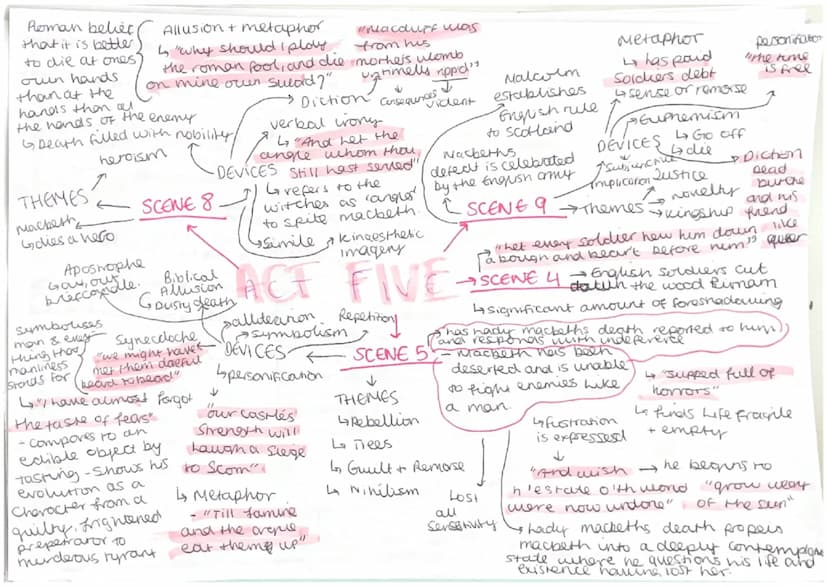 Roman belief
that it is better
to die at ones
own hands
than at the
hands than at
the hands of the enemy
↳ Death filled with nobility
heroism
Allusion + metaphor
↳ "Why should I play
the roman fool, and die
on mine own suicid?"
"Macduff was
from his
mothers womb
untimells rippd"
consequences
violent
Diction
verbal irony
↳ "And let the
angle whom thou
still hast served"
↳ refers to the
witches as 'angles'
to spite macbeth.
Simile
Kinaesthetic
imagery
DEVICES
SCENE 8
THEMES
Macbeth
↳ dies a hero
Malcolm
establishes
English rule
to Scotland
Macbeths
defeat is celebrated
by the English army
Metaphor
↳ has paid
soldiers debt
↳ sense or remorse
personification
"the time
is free
Euphemism
↳ Go off
↳ die
DEVICES
implication
Justice
SCENE 9
Themes
novelty
Kingship
Diction
Dead
butche
and his
friend
like
queer
ACT FIVE
"Let every soldier hew him down
a bough and bear't before him"
SCENE 4
English soldiers cut
down the wood Burnam
↳ significant amount of foreshadowing
Apostrophe
↳ out, out
brief candle.
Biblical
Allusion
↳ Dusty death
alliteration
symbolism
Repetition
DEVICES
SCENE 5
Symbolises
man & every
thing that
manliness
stands for
Synecdoche
"we might have
met them dareful
beard to beard"
↳ "I have almost forgot
the taste of fears"
- compares to an
edible object by
tasting - shows his
evolution as a
character from a
guilty, frightened
prepetrator to
murderous tyrant
↳ personification
"our castles
strength will
laugh a siege
to scorn"
↳ Metaphor
- "Till famine
and the argue
eat them up"
THEMES
↳ Rebellion
↳ Trees
↳ Guilt + Remorse
↳ Nihilism
- has lady macbeths death reported to him
and responds with indeference
- Macbeth has been
deserted and is unable
to fight enemies like
a man.
Lost
all
sensitivity
↳ "supped full of
horrors"
↳ finds life fragile
+ empty
↳ frustration
is expressed
"And wish
h'estate o'th world
were now undone"
he begins to
"grow weary
of the sun"
↳ Lady macbeths death propels
macbeth into a deeply contemplative
state where he questions his life and
existence having lost her.